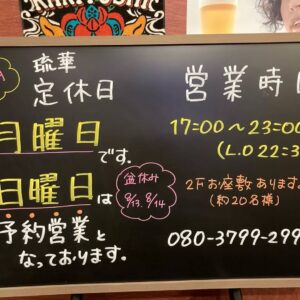 琉華
定休日
月曜日
です。
日曜日は
予約営業と
なっております。
盆休み
8/13. 8/14
営業時
17:00〜23:00
(L.O 22:3
2Fお座敷あります。
(約20名様)
080-3799-299